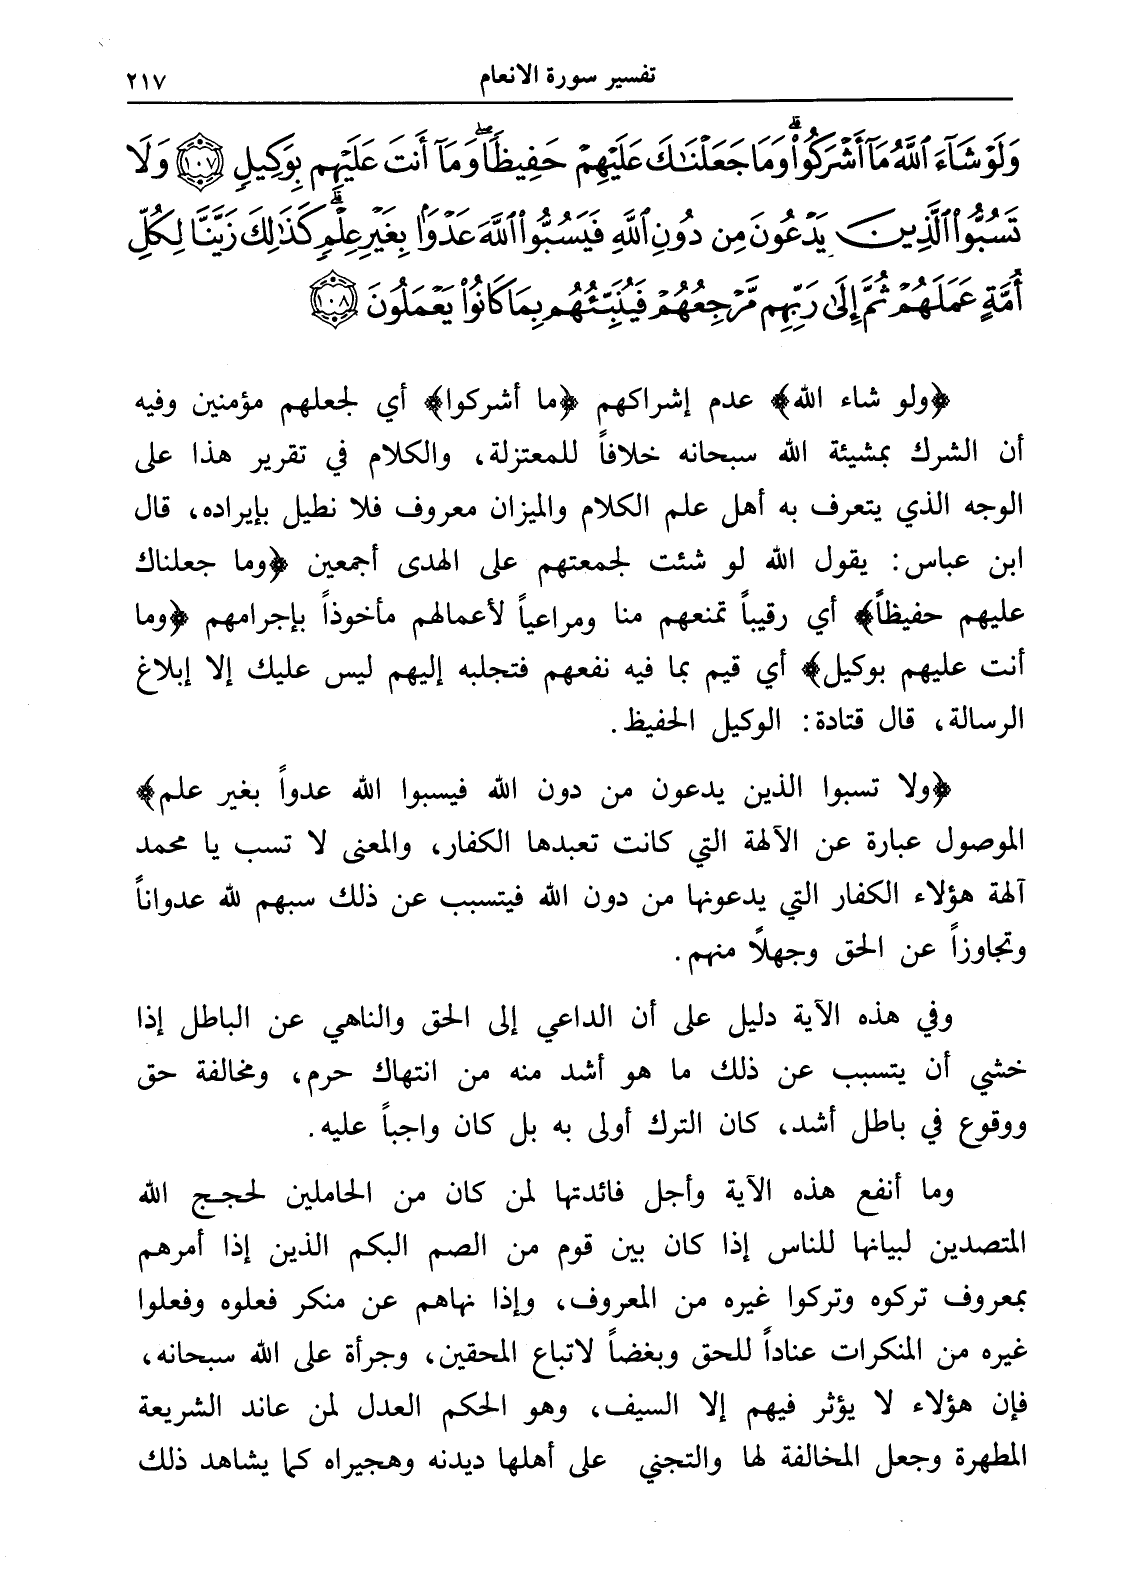 تفسير سورة الانعام ٢١٧
وَلَوْ شَآءَ ٱللَّهُ مَآ أَشْرَكُوا۟ ۗ وَمَا جَعَلْنَـٰكَ عَلَيْهِمْ حَفِيظًا ۖ وَمَآ أَنتَ عَلَيْهِم بِوَكِيلٍ ١٠٧ وَلَا
تَسُبُّوا۟ ٱلَّذِينَ يَدْعُونَ مِن دُونِ ٱللَّهِ فَيَسُبُّوا۟ ٱللَّهَ عَدْوًۢا بِغَيْرِ عِلْمٍ ۗ كَذَٰلِكَ زَيَّنَّا لِكُلِّ
أُمَّةٍ عَمَلَهُمْ ثُمَّ إِلَىٰ رَبِّهِم مَّرْجِعُهُمْ فَيُنَبِّئُهُم بِمَا كَانُوا۟ يَعْمَلُونَ ١٠٨
﴿ولو شاء الله﴾ عدم إشراكهم ﴿ما أشركوا﴾ أي لجعلهم مؤمنين وفيه
أن الشرك بمشيئة الله سبحانه خلافاً للمعتزلة، والكلام في تقرير هذا على
الوجه الذي يتعرف به أهل علم الكلام والميزان معروف فلا نطيل بإيراده، قال
ابن عباس: يقول الله لو شئت لجمعتهم على الهدى أجمعين ﴿وما جعلناك
عليهم حفيظاً﴾ أي رقيباً تمنعهم منا ومراعياً لأعمالهم مأخوذاً بإجرامهم ﴿وما
أنت عليهم بوكيل﴾ أي قيم بما فيه نفعهم فتجلبه إليهم ليس عليك إلا إبلاغ
الرسالة، قال قتادة: الوكيل الحفيظ.
﴿ولا تسبوا الذين يدعون من دون الله فيسبوا الله عدواً بغير علم﴾
الموصول عبارة عن الآلهة التي كانت تعبدها الكفار، والمعنى لا تسب يا محمد
آلهة هؤلاء الكفار التي يدعونها من دون الله فيتسبب عن ذلك سبهم لله عدواناً
وتجاوزاً عن الحق وجهلاً منهم.
وفي هذه الآية دليل على أن الداعي إلى الحق والناهي عن الباطل إذا
خشي أن يتسبب عن ذلك ما هو أشد منه من انتهاك حرم، ومخالفة حق
ووقوع في باطل أشد، كان الترك أولى به بل كان واجباً عليه.
وما أنفع هذه الآية وأجل فائدتها لمن كان من الحاملين لحجج الله
المتصدين لبيانها للناس إذا كان بين قوم من الصم البكم الذين إذا أمرهم
بمعروف تركوه وتركوا غيره من المعروف، وإذا نهاهم عن منكر فعلوه وفعلوا
غيره من المنكرات عناداً للحق وبغضاً لاتباع المحقين، وجرأة على الله سبحانه،
فإن هؤلاء لا يؤثر فيهم إلا السيف، وهو الحكم العدل لمن عاند الشريعة
المطهرة وجعل المخالفة لها والتجني على أهلها ديدنه وهجيراه كما يشاهد ذلك